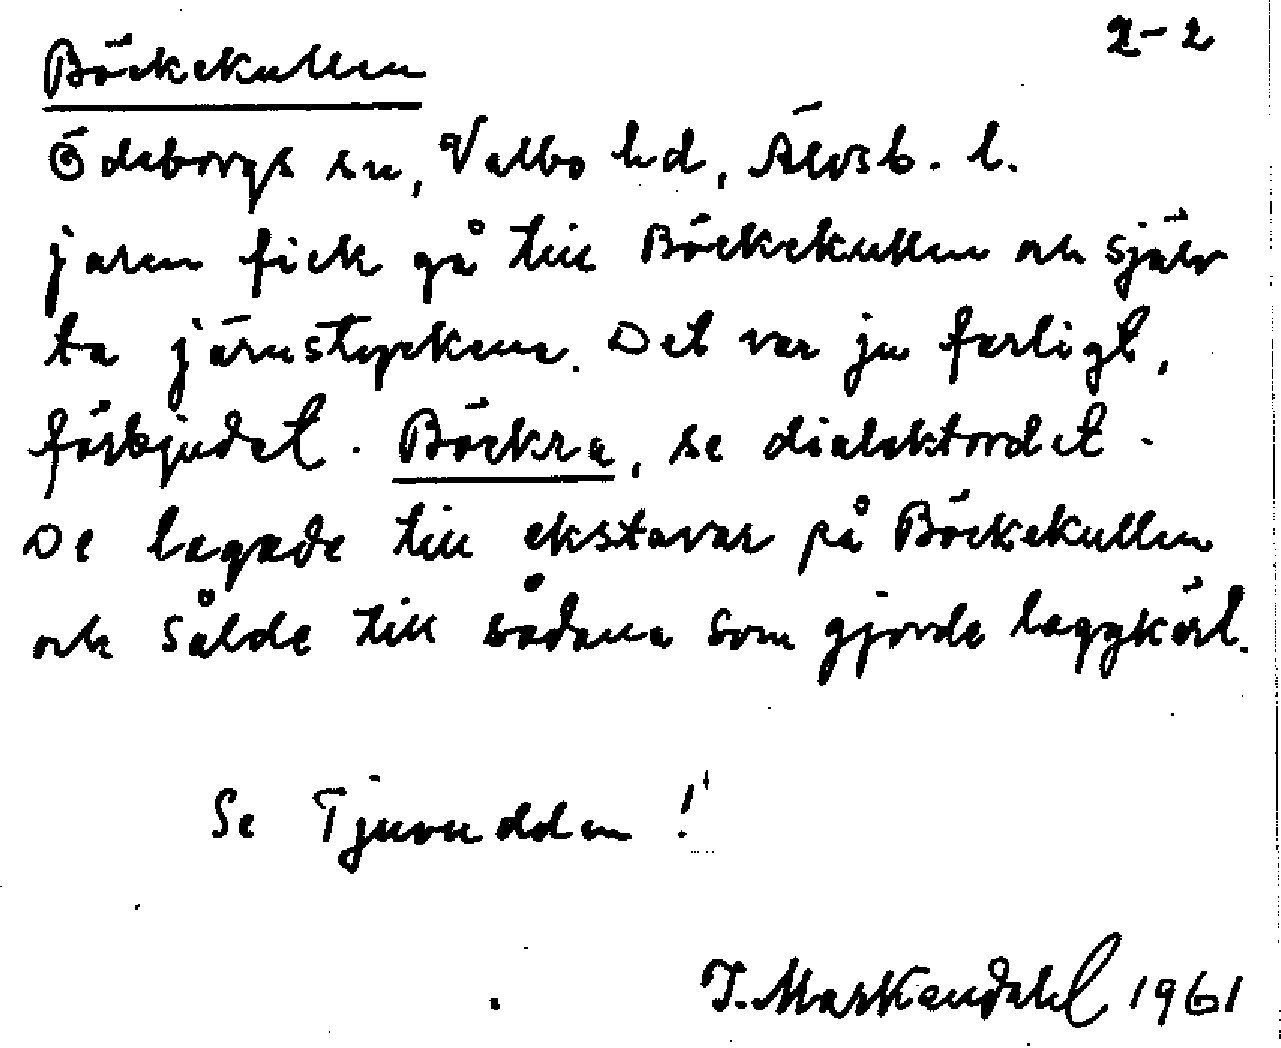 2-2
Böckekullen
Ödeborgs sn, Valbo hd, Älvsb. l.
jaren fick gå till Böckekullen och själv
ta järnstyckena. Det var ju farligt,
förbjudet. Böckra, se dialektordet.
De lagade till ekstavar på Böckekullen
och sålde till sådana som gjorde laggkärl.
Se Tjuvudden!
T. Markendahl 1961